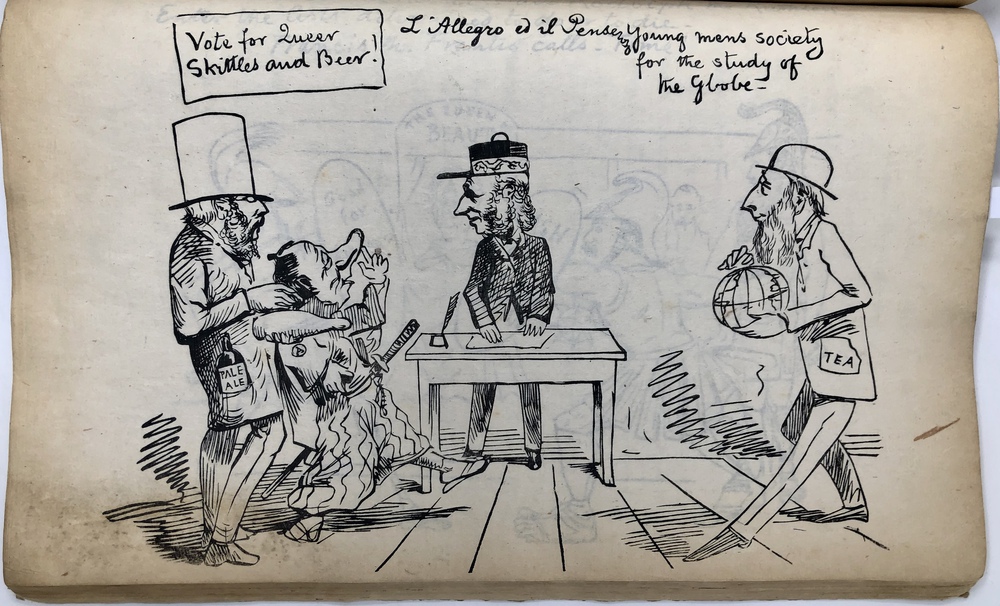 Vote for Queer
Skittles and Beer!
L'Allegro ed il Penseroso
Young mens society
for the study of
the Globe-
PALE
ALE
TEA
BEAU